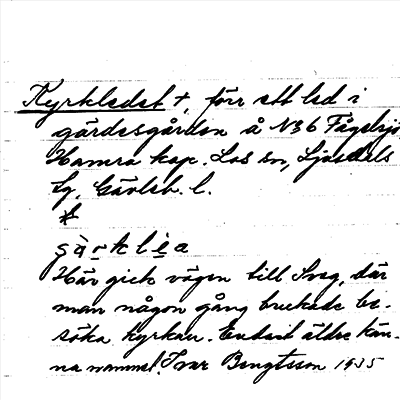 Kyrkledet †, förr ett led i
gärdesgården å N⁰ 6 Fågelsjö
Hamra kap. Los sn, Ljusdals
tg, Gävleb. l.
șàrklèa
Här gick vägen till Sveg, där
man någon gång brukade be-
söka kyrkan. Endast äldre kän-
na namnet. Ivar Bengtsson 1935